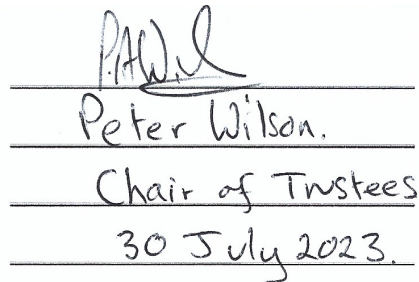 P.A.Wil
Peter Wilson.
Chair of Trustees
30 July 2023.